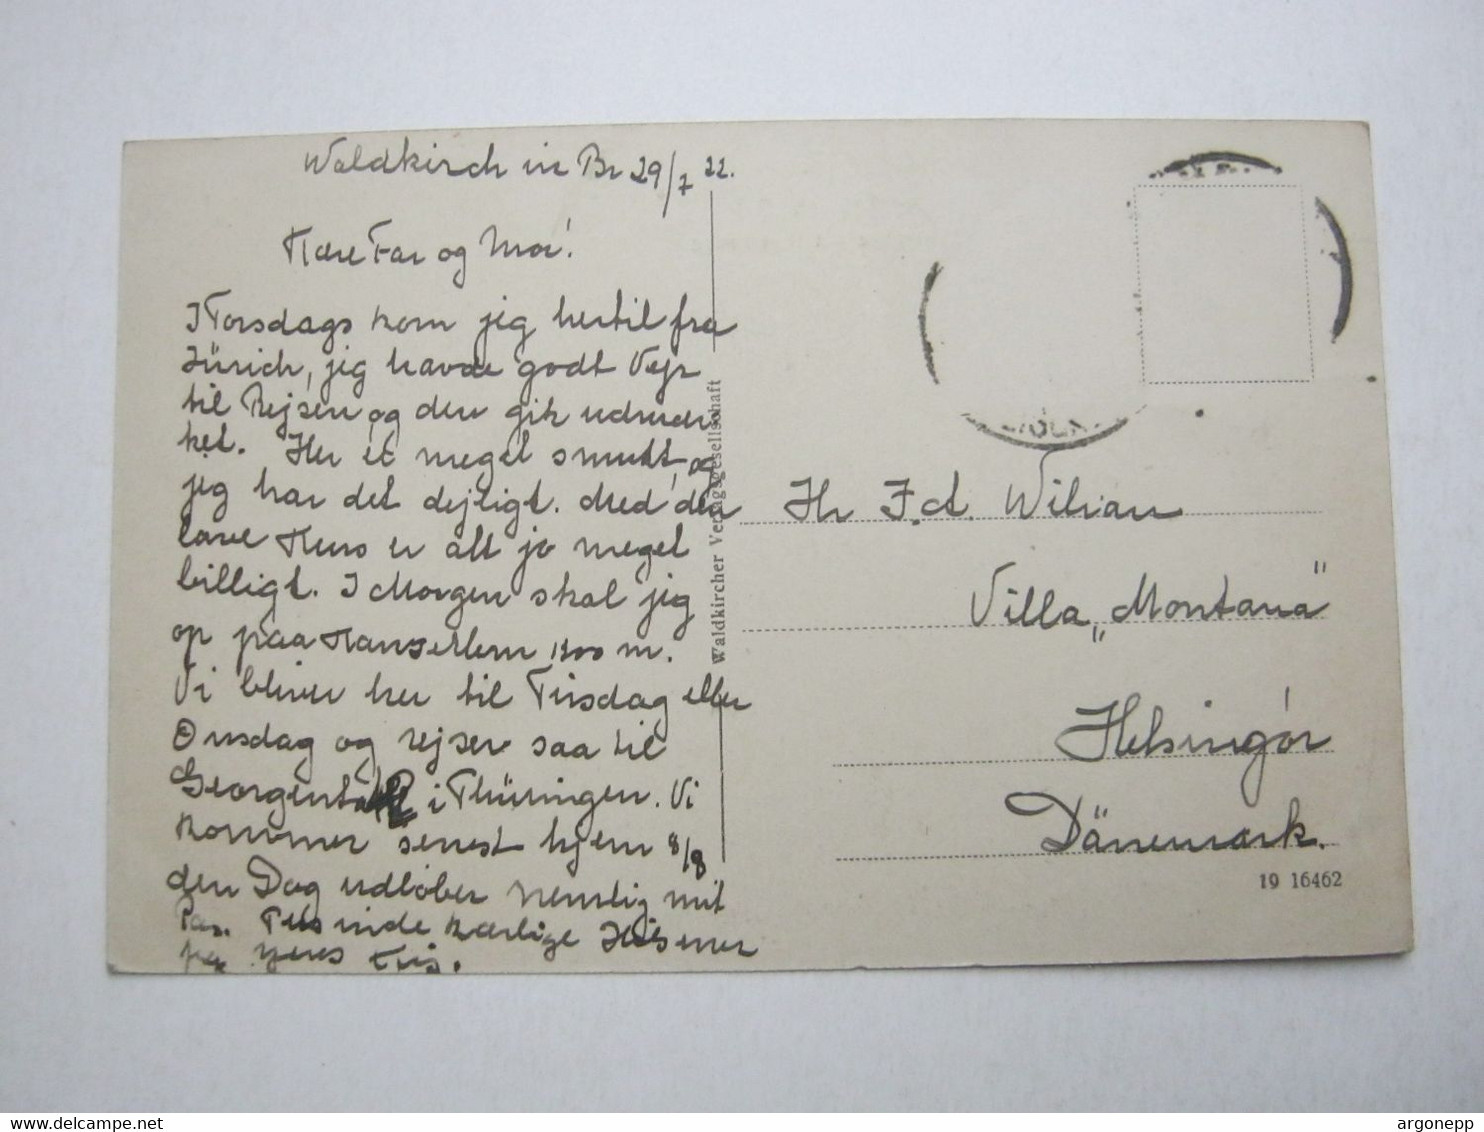 Waldkirch in Br 29/7 22.
Kære Far og Mor!
I Torsdags kom jeg hertil fra
Zürich, jeg havde godt Vejr
til Rejsen og den gik udmær
ket. Her er meget smukt, og
jeg har det dejligt. Med den
lave Kurs er alt jo meget
billigt. I Morgen skal jeg
op paa 1200 m.
Vi bliver her til Tirsdag eller
Onsdag og rejser saa til
i Thüringen. Vi
kommer senest hjem 8/8
den Dag udløber nemlig mit
Pas. Tusinde kærlige Hilsener
Waldkircher Verlagsgesellschaft
Hr F. A. Wilian
Villa „Montana"
Helsingør
Dänemark.
19 16462
argonepp
www.delcampe.net